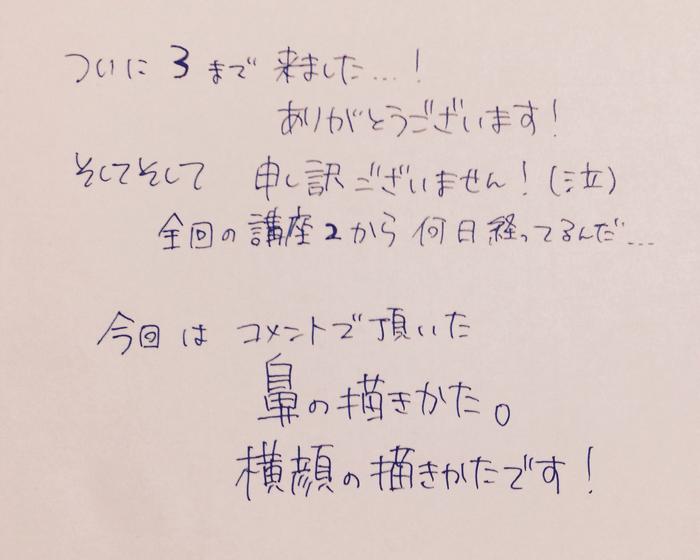 ついに 3 まで 来ました…!
ありがとうございます!
そしてそして 申し訳ございません!(泣)
全回の講座2から 何日経ってるんだ…
今回は コメントで頂いた
鼻の描きかた。
横顔の描きかたです!